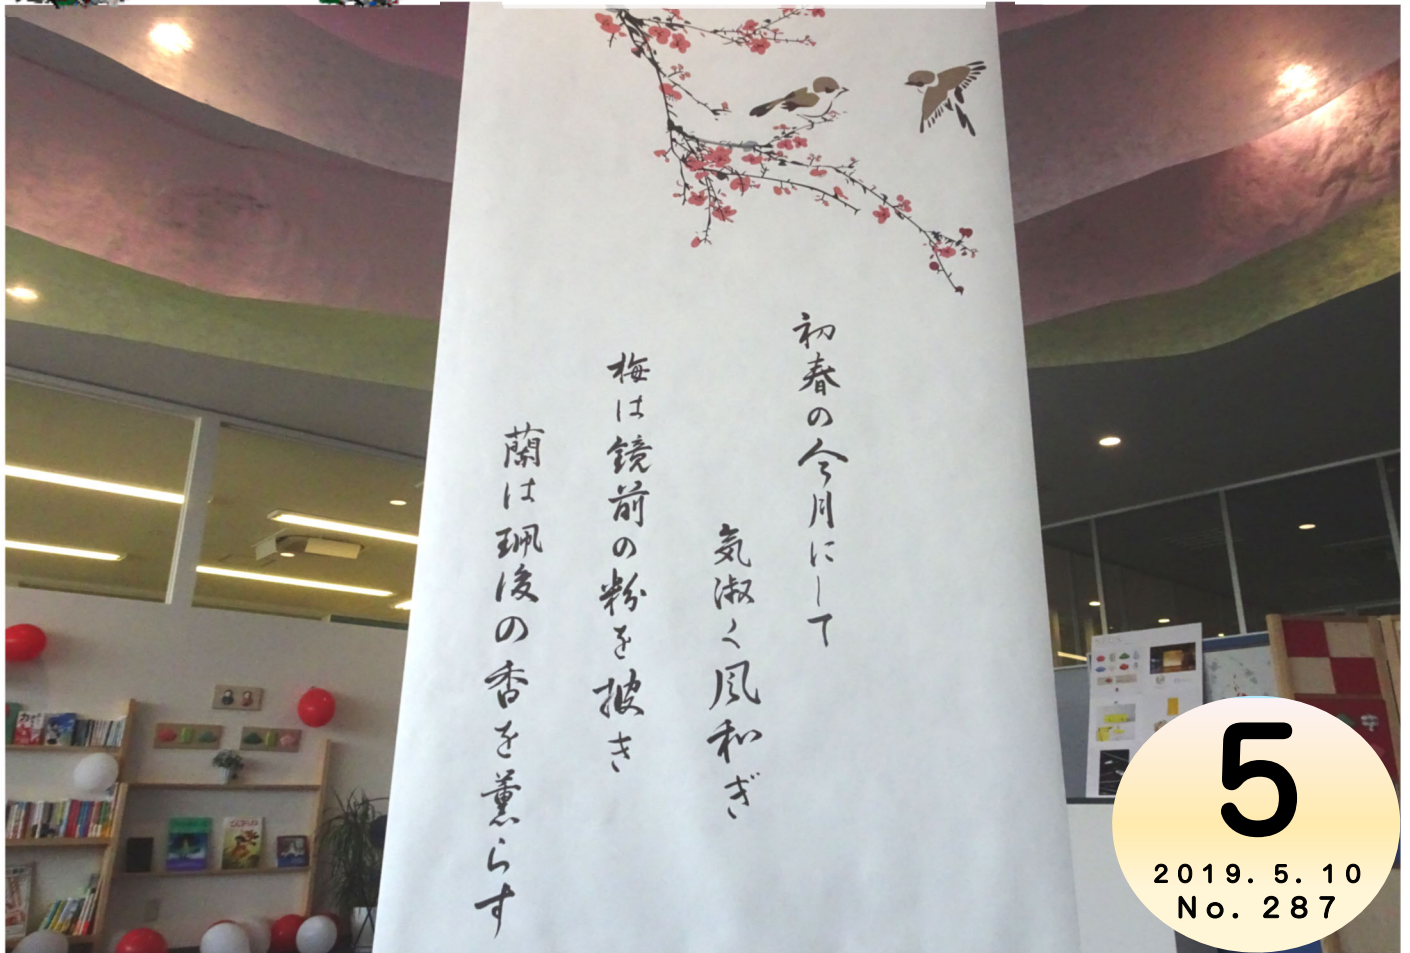 初春の今月にして
気淑く風和ぎ
梅は鏡前の粉を披き
蘭は珮後の香を薫らす
5
2019. 5. 10
No. 287